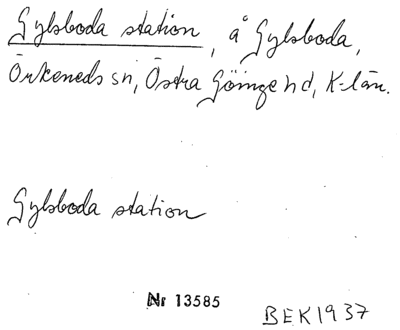 Gylsboda station, å Gylsboda,
Örkeneds sn, Östra Göinge hd, K-län.
Gylsboda station
Nr 13585
BEK1937